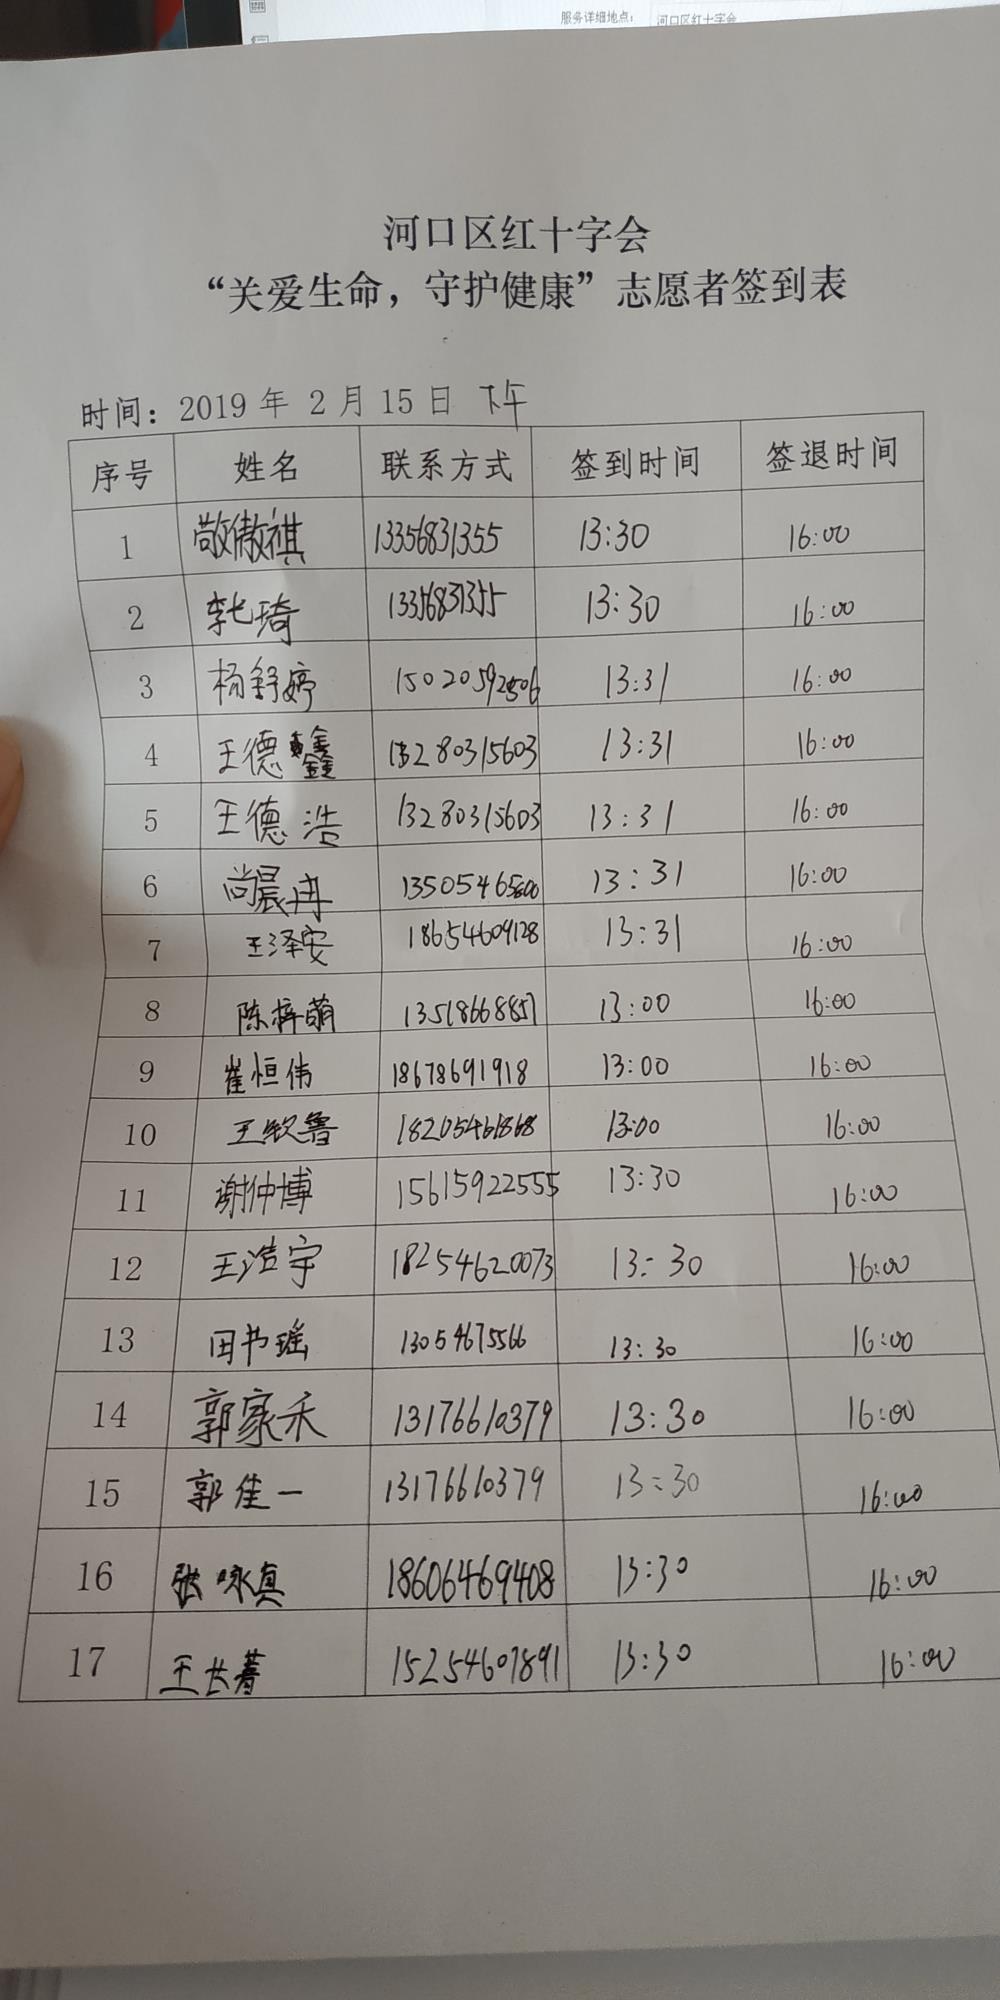 服务详细地点： 河口区红十字会
河口区红十字会
“关爱生命，守护健康”志愿者签到表
时间：2019 年 2 月 15 日 下午
序号 姓名 联系方式 签到时间 签退时间
1 敬傲祺 13356831355 13:30 16:00
2 李七琦 13356831355 13:30 16:00
3 杨舒婷 15020592806 13:31 16:00
4 王德鑫 13280315603 13:31 16:00
5 王德浩 13280315603 13:31 16:00
6 尚晨冉 13505465800 13:31 16:00
7 王泽安 18654609128 13:31 16:00
8 陈梓萌 13518668857 13:00 16:00
9 崔恒伟 18678691918 13:00 16:00
10 王钦鲁 18205461868 13:00 16:00
11 谢仲博 15615922555 13:30 16:00
12 王浩宇 18254620073 13:30 16:00
13 田书瑶 13054675566 13:30 16:00
14 郭家禾 13176610379 13:30 16:00
15 郭佳一 13176610379 13:30 16:00
16 张咏真 18606469408 13:30 16:00
17 王 15254607891 13:30 16:00